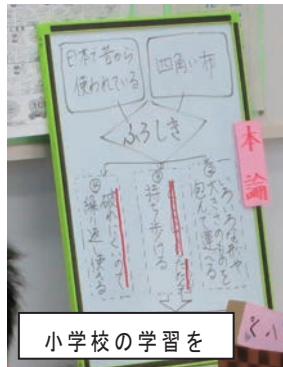 日本で昔から
使われている
四角い布
ふろしき
本論
いろいろな形や
大きさのものを
包んで運べる
持ち歩ける
破れにくくて
繰り返し使える
小学校の学習を